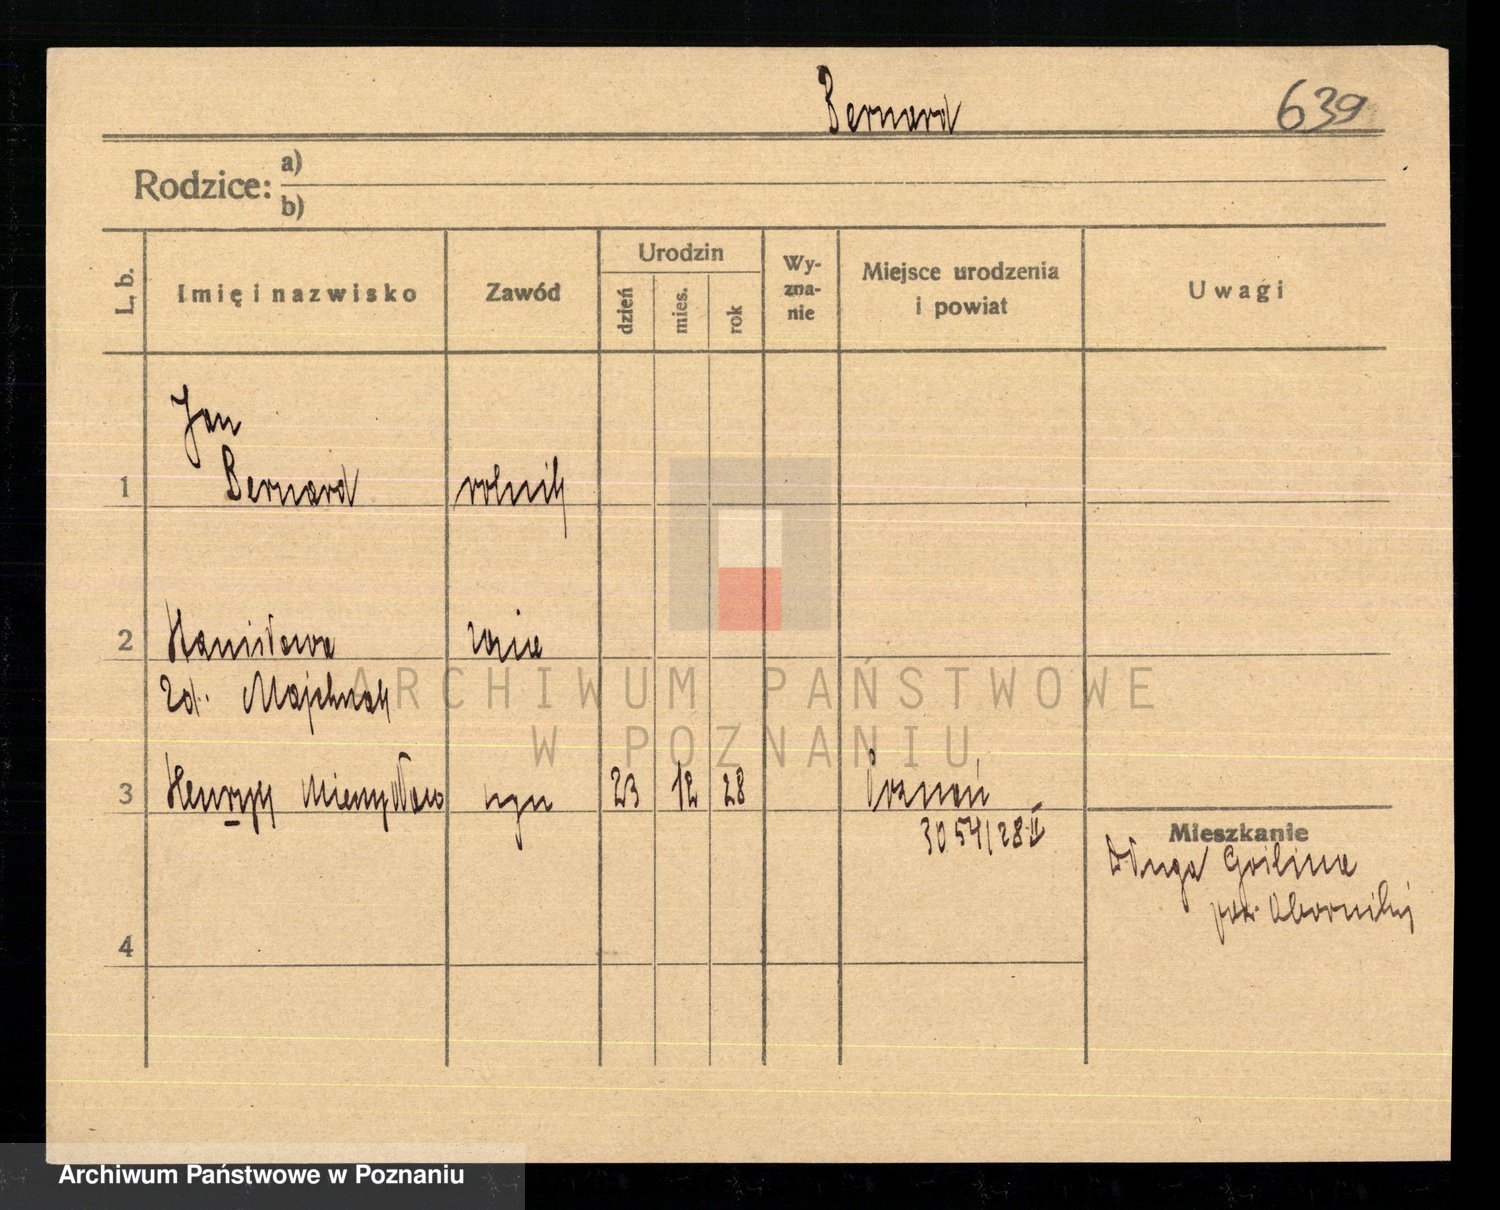 Bernard 639
Rodzice: a)
b)
L. b. Imię i nazwisko Zawód Urodzin dzień mies. rok Wy-zna-nie Miejsce urodzenia i powiat Uwagi
Jan
1 Bernard rolnik
2 Stanisława żona
zd. Majchrzak
3 Henryk Mieczysław syn 23 12 28 Poznań
3054/28 II
Mieszkanie
Długa Goślina
pow. Oborniki
4
ARCHIWUM PAŃSTWOWE
W POZNANIU
Archiwum Państwowe w Poznaniu